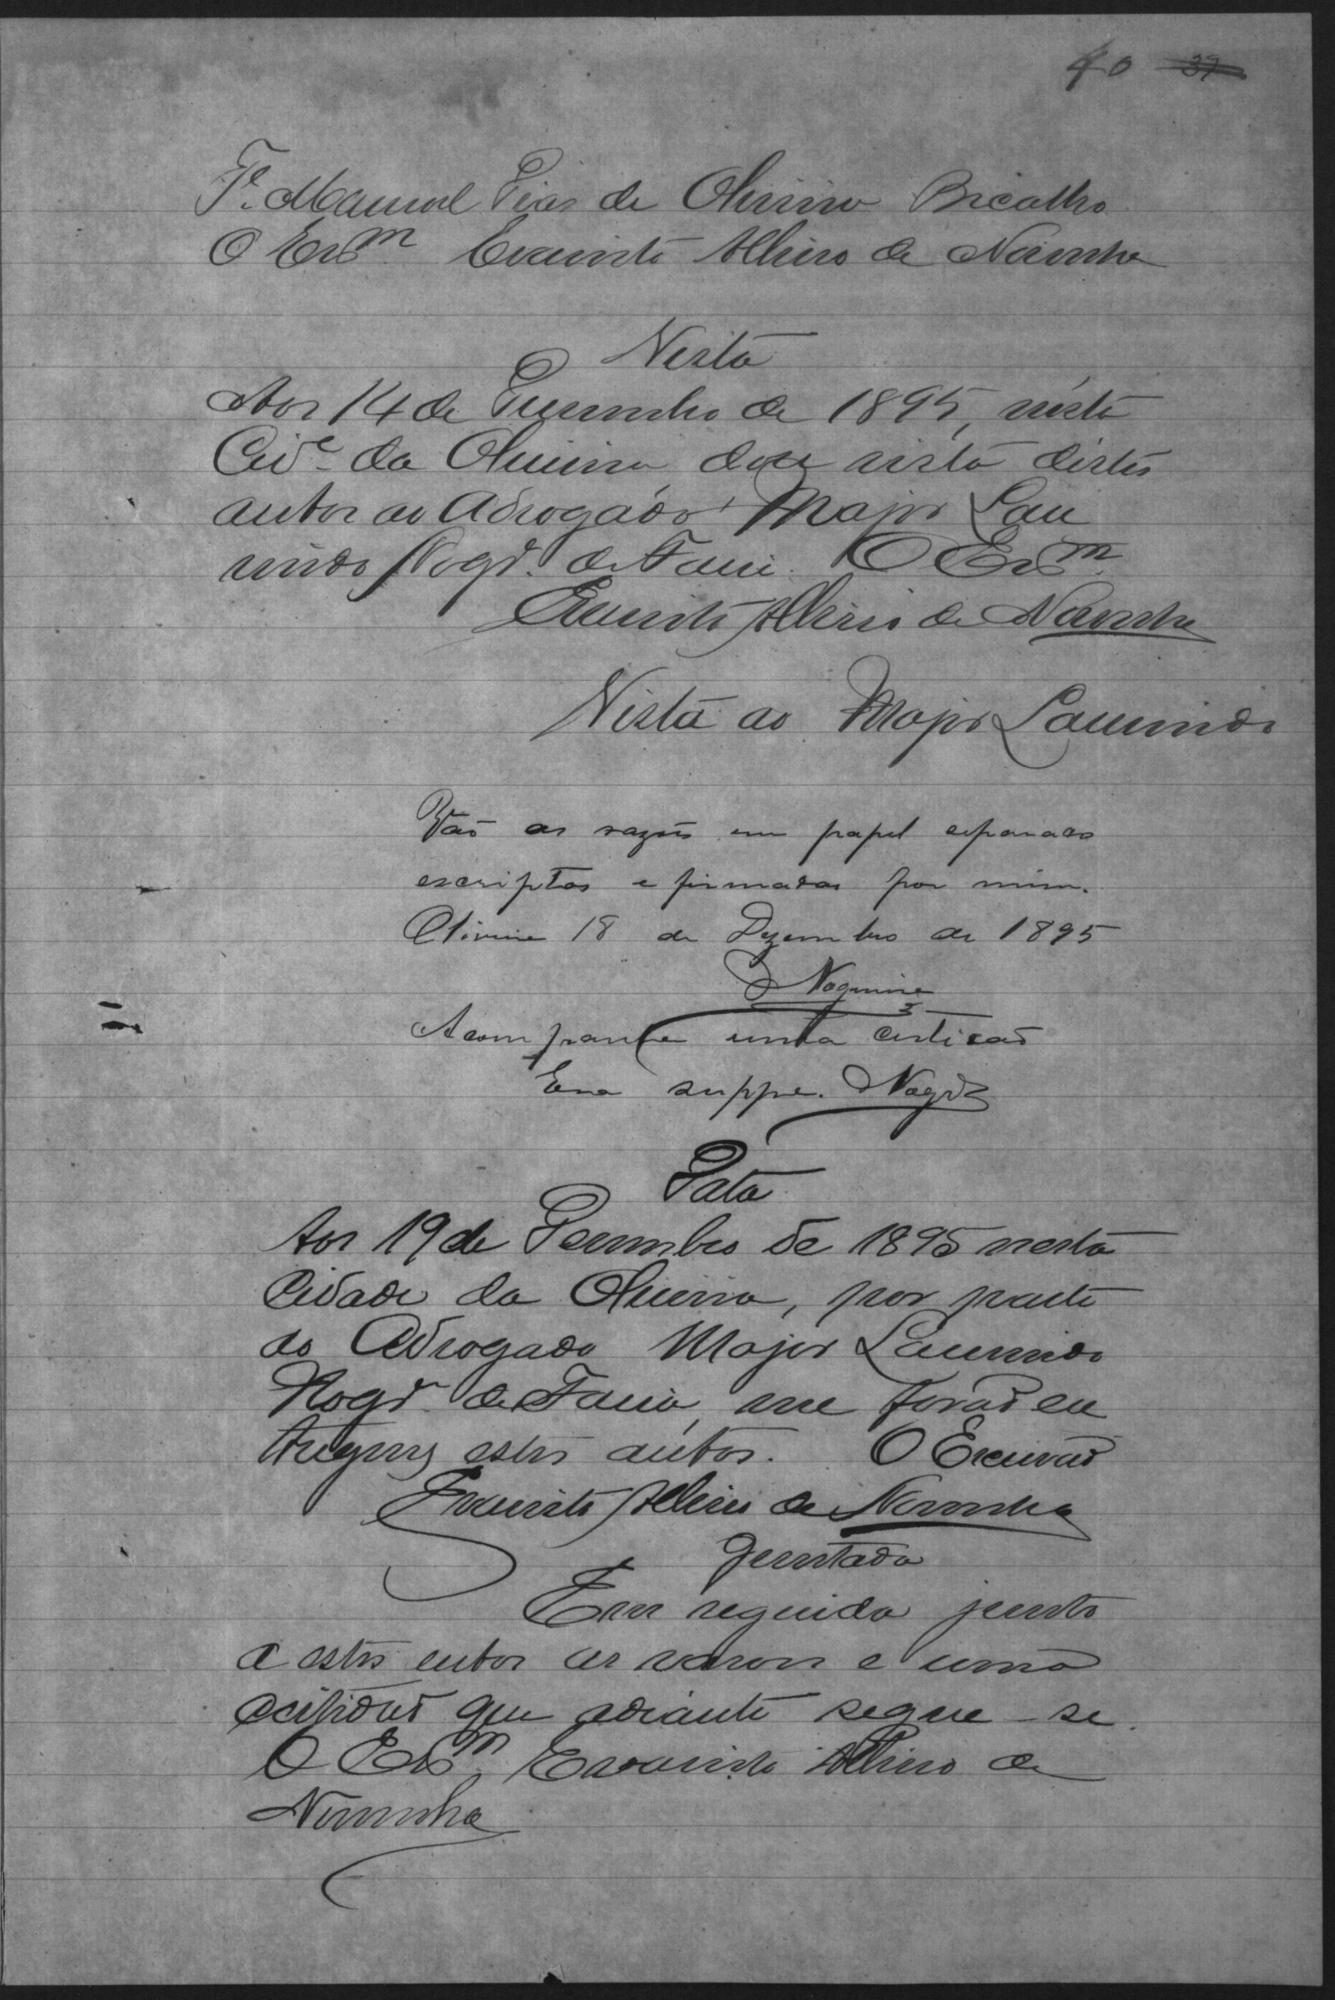 40 39
Te. Manoel Dias de Oliveira Bicalho
O Escm. Evaristo Alheiro de Noronha
Vista
Aos 14 de Dezembro de 1895, nésta
Cide. da Oliveira dou vista déstes
autos ao Advogado Major Lau
rindo Nogra. de Faria. O Escm.
Evaristo Alheiro de Noronha
Vista ao Major Laurindo
Vão as razões em papel separado
escriptas e firmadas por mim.
Oliveira 18 de Dezembro de 1895
Nogueira
Acompanha uma certidão
Era supra. Nogra
Data
Aos 19 de Dezembro de 1895 nesta
Cidade da Oliveira, por parte
do Advogado Major Laurindo
Nogra. de Faria, me forão en
tregues estes autos. O Escrivão
Evaristo Alheiro de Noronha
Juntada
Em seguida junto
a estes autos as rasons e uma
certidão que adiante segue-se.
O Escm. Evaristo Alheiro de
Noronha